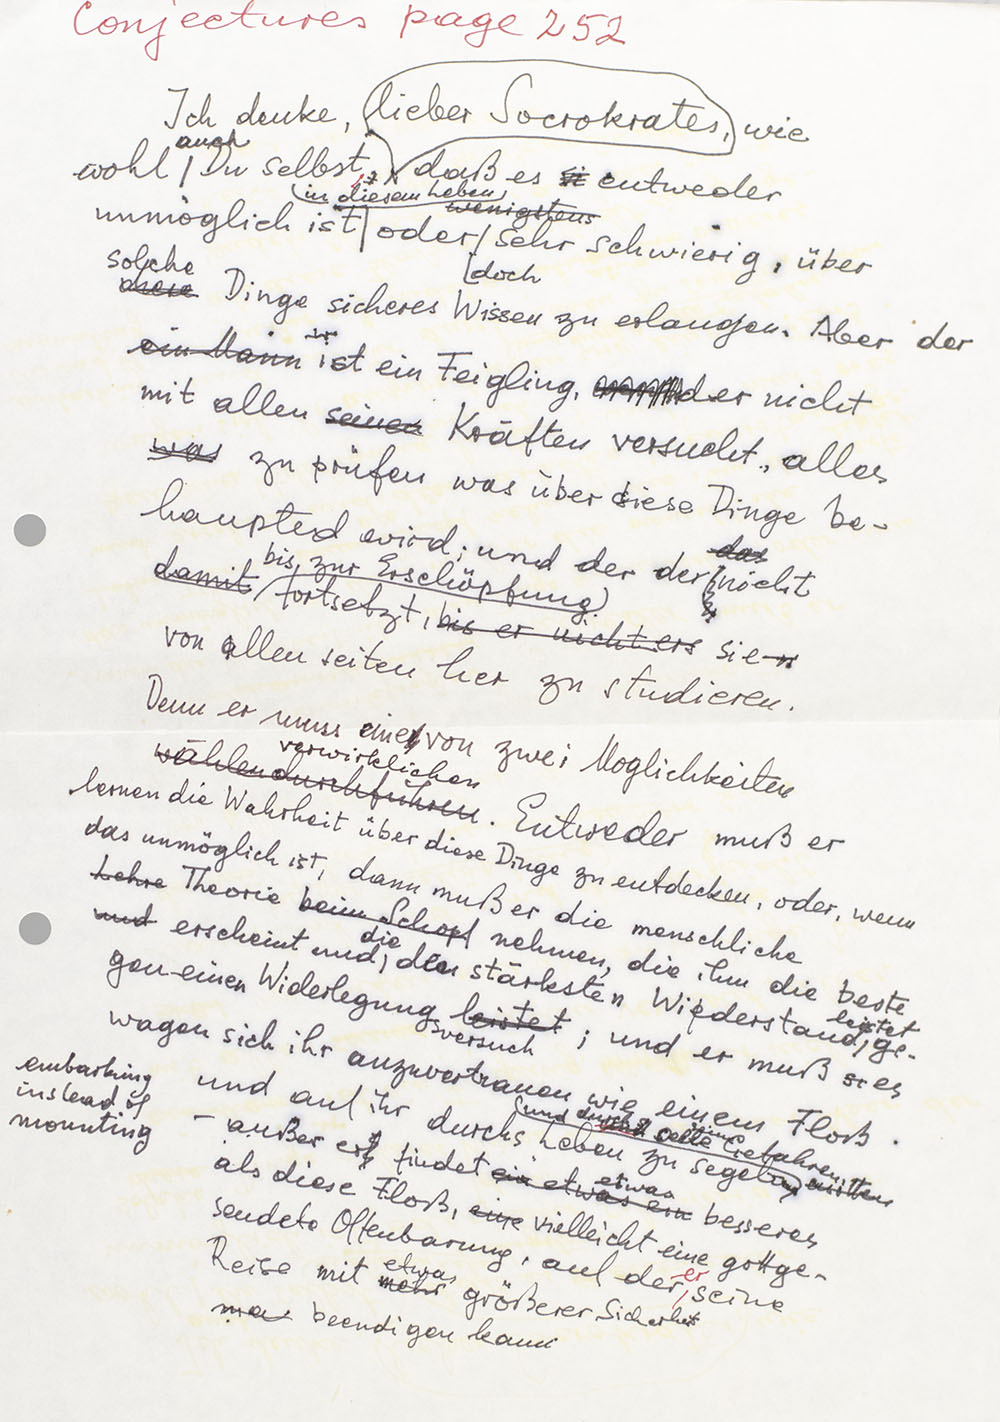 Conjectures page 252
Ich denke, lieber Socrokrates, wie
auch
wohl Du selbst, daß es entweder
in diesem Leben
wenigstens
unmöglich ist oder sehr schwierig, über
solche doch
diese Dinge sicheres Wissen zu erlangen. Aber der
ein Mann ist ein Feigling, der nicht
mit allen seinen Kräften versucht, alles
was zu prüfen was über diese Dinge be-
haupted wird; und der der das nicht
bis zur Erschöpfung
damit fortsetzt, bis er nicht ers sie
von allen seiten her zu studieren.
Denn er muss eine von zwei Moglichkeiten
verwirklichen
wählen durchführen. Entweder muß er
lernen die Wahrheit über diese Dinge zu entdecken, oder, wenn
das unmöglich ist, dann muß er die menschliche
Lehre Theorie beim Schopf nehmen, die ihm die beste
und erscheint und, die den stärksten Wiederstand, leistet ge-
gen einen Widerlegung leistet; und er muß es
versuch
wagen sich ihr anzuvertrauen wie einem Floß.
embarking
instead of
mounting
und auf ihr durchs Leben zu segeln, mitten
und durch seine Gefahren
– außer er findet ein etwas ein besseres
etwas
als diese Floß, eine vielleicht eine gottge-
sendete Offenbarung, auf der er seine
Reise mit mehr etwas größerer Sicherheit
beendigen kann